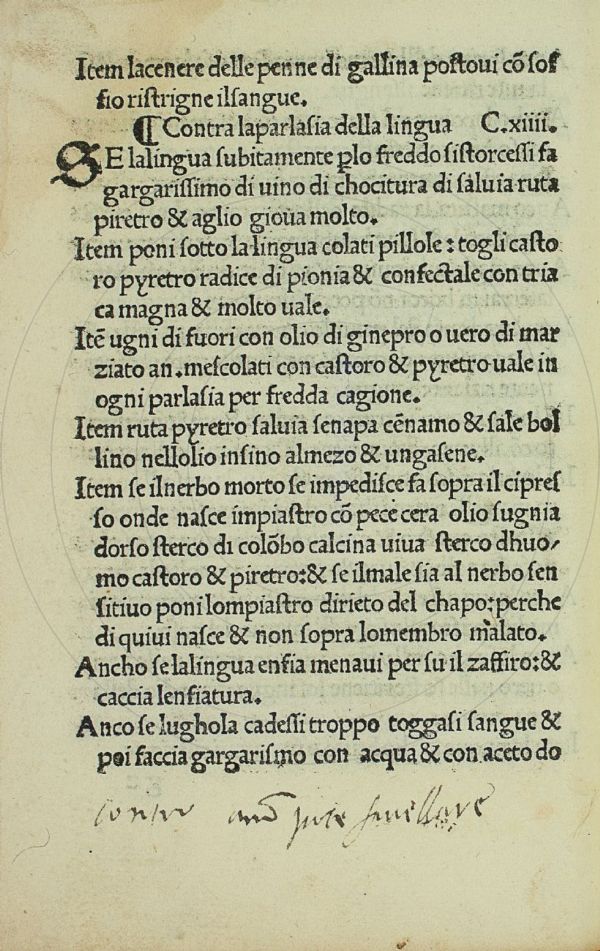 Item lacenere delle penne di gallina postoui cõ sof
fio ristrigne ilsangue.
⸿ Contra laparlasia della lingua C.xiiii.
SE lalingua subitamente plo freddo sistorcessi fa
gargarissimo di uino di chocitura di saluia ruta
piretro & aglio gioua molto.
Item poni sotto la lingua colati pillole : togli casto
ro pyretro radice di pionia & confectale con tria
ca magna & molto uale.
Itẽ ugni di fuori con olio di ginepro o uero di mar
ziato an. mescolati con castoro & pyretro uale in
ogni parlasia per fredda cagione.
Item ruta pyretro saluia senapa cẽnamo & sale bol
lino nellolio insino almezo & ungasene.
Item se ilnerbo morto se impedisce fa sopra il cipres
so onde nasce impiastro cõ pece cera olio sugnia
dorso sterco di colõbo calcina uiua sterco dhuo/
mo castoro & piretro:& se ilmale sia al nerbo sen
sitiuo poni lompiastro dirieto del chapo:perche
di quiui nasce & non sopra lomembro malato.
Ancho se lalingua enfia menaui per su il zaffiro:&
caccia lenfiatura.
Anco se lughola cadessi troppo toggasi sangue &
poi faccia gargarismo con acqua & con aceto do